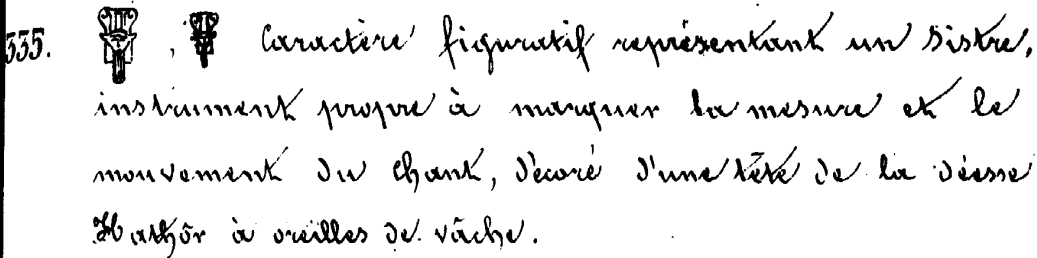 335. , Caractère figuratif représentant un Sistre,
instrument propre à marquer la mesure et le
mouvement du chant, décoré d'une tête de la déesse
Hathôr à oreilles de vâche.